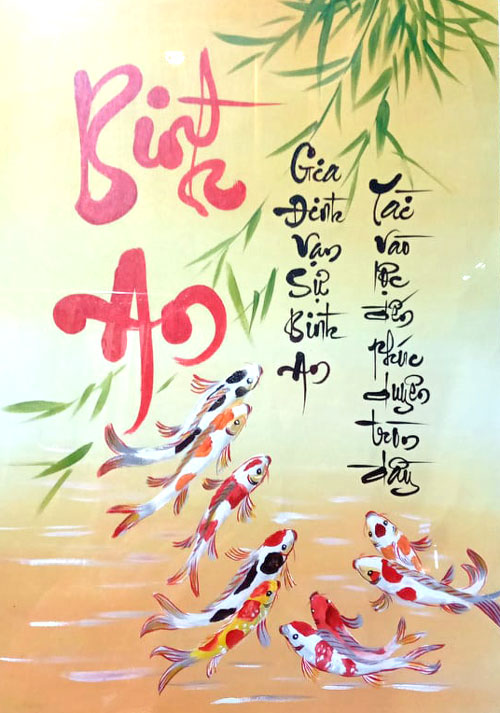 Bình
An
Gia Đình Vạn Sự Bình An
Tài vào lộc đến phúc duyên tròn đầy